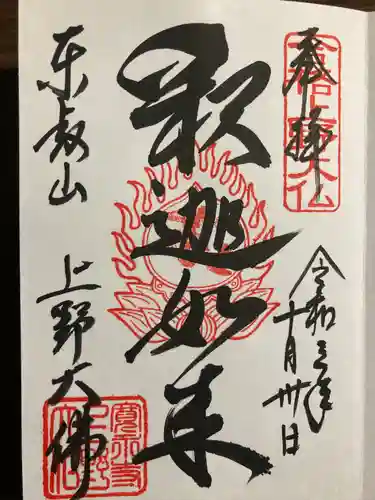 奉拝
令和三年
十月卅日
釈迦如来
東叡山
上野大佛